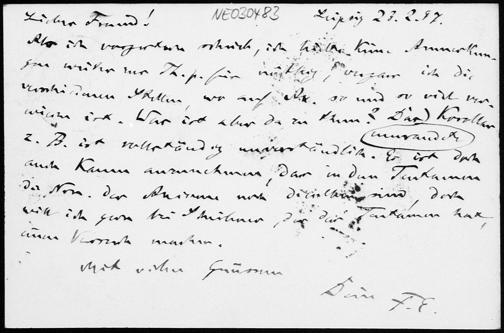 NE030483
Lieber Freund! Leipzig 23.2.97.
Als ich vorgestern schrieb, ich hätte keine Anmerkun-
gen weiter zur Th. p. für nöthig, vergass ich die
verschiedenen Stellen, wo auf Ax. so und so viel ver-
wiesen ist. Was ist aber da zu thun? Das Korollar
z. B. ist vollständig unverständlich. Es ist doch
auch kaum anzunehmen, dass in den
die der noch dieselben sind, doch
will ich gern bei , der die hat,
einen Versuch machen.
Mit vielen Grüssen
Dein F. E.